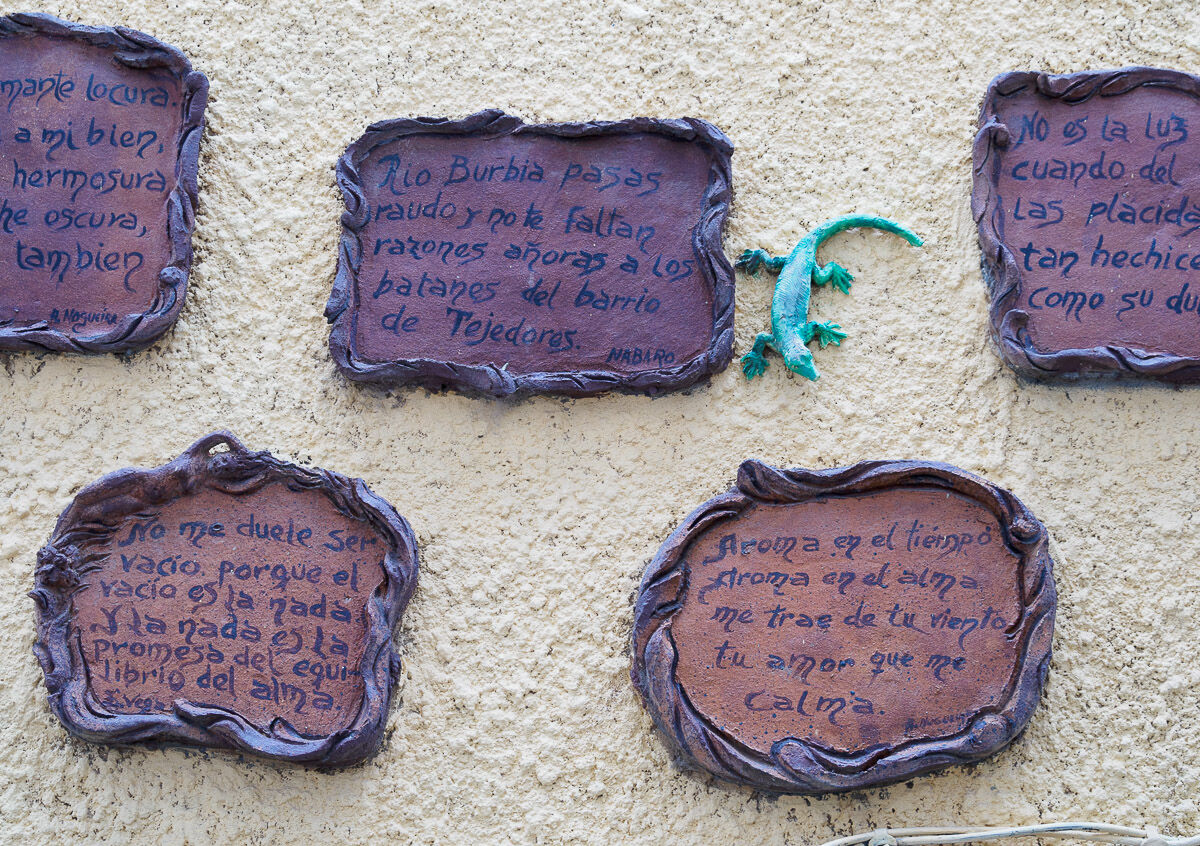 mante locura.
a mi bien,
hermosura
he oscura,
también
A. Nogueira
Río Burbia pasas
raudo y no te faltan
razones añoras a los
batanes del barrio
de Tejedores.
NABARO
No es la luz
cuando del
las placida
tan hechice
como su du
No me duele ser
vacío, porque el
vacío es la nada
Y la nada es la
promesa del equi-
librio del alma.
Aroma en el tiempo
Aroma en el alma
me trae de tu viento
tu amor que me
calma.
A. Nogueira